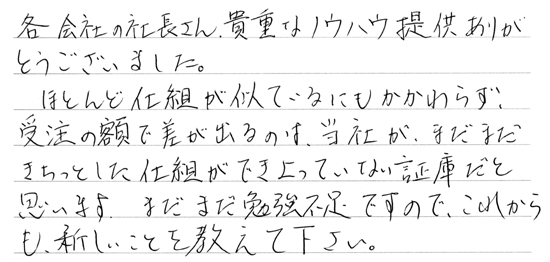 各会社の社長さん、貴重なノウハウ提供ありが
とうございました。
ほとんど仕組が似ているにもかかわらず、
受注の額で差が出るのは、当社が、まだまだ
きちっとした仕組ができ上っていない証庫だと
思います。まだまだ勉強不足ですので、これから
も、新しいことを教えて下さい。